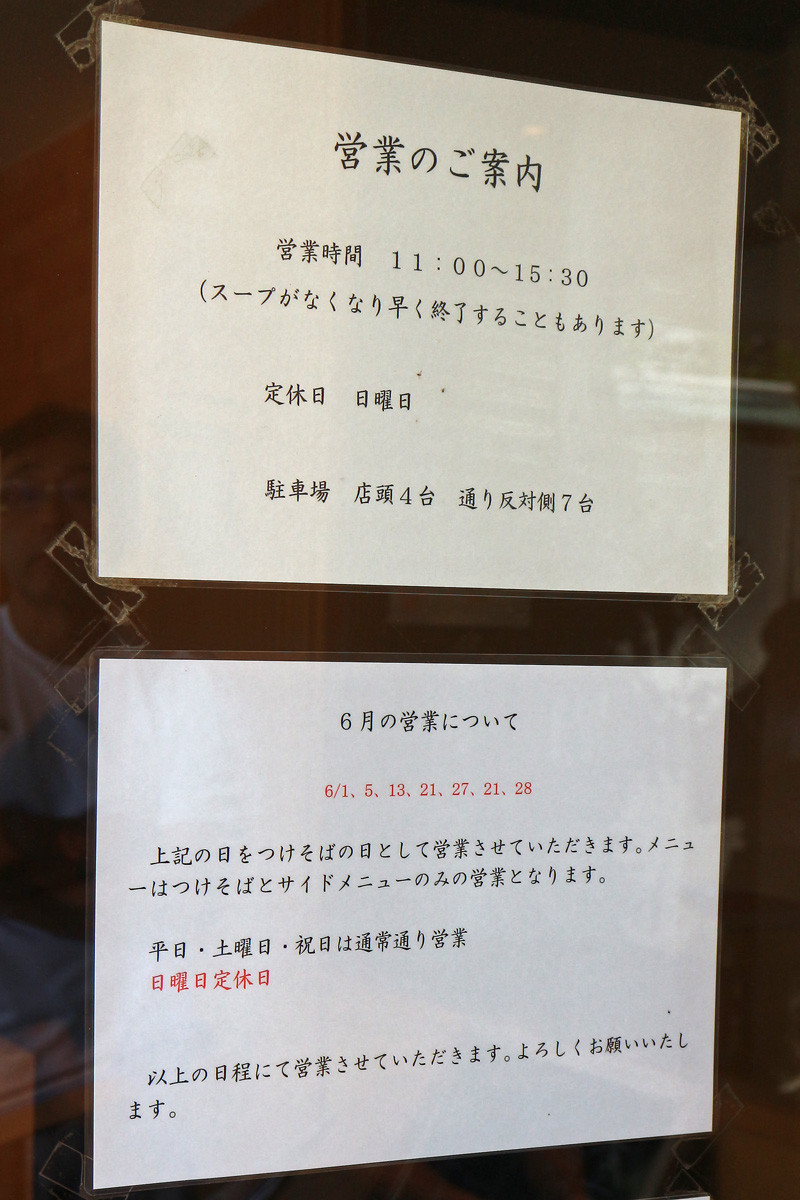 営業のご案内
営業時間　１１：００～15：30
（スープがなくなり早く終了することもあります）
定休日　日曜日
駐車場　店頭４台　通り反対側７台
６月の営業について
6/1、5、13、21、27、21、28
上記の日をつけそばの日として営業させていただきます。メニュ
ーはつけそばとサイドメニューのみの営業となります。
平日・土曜日・祝日は通常通り営業
日曜日定休日
以上の日程にて営業させていただきます。よろしくお願いいたし
ます。